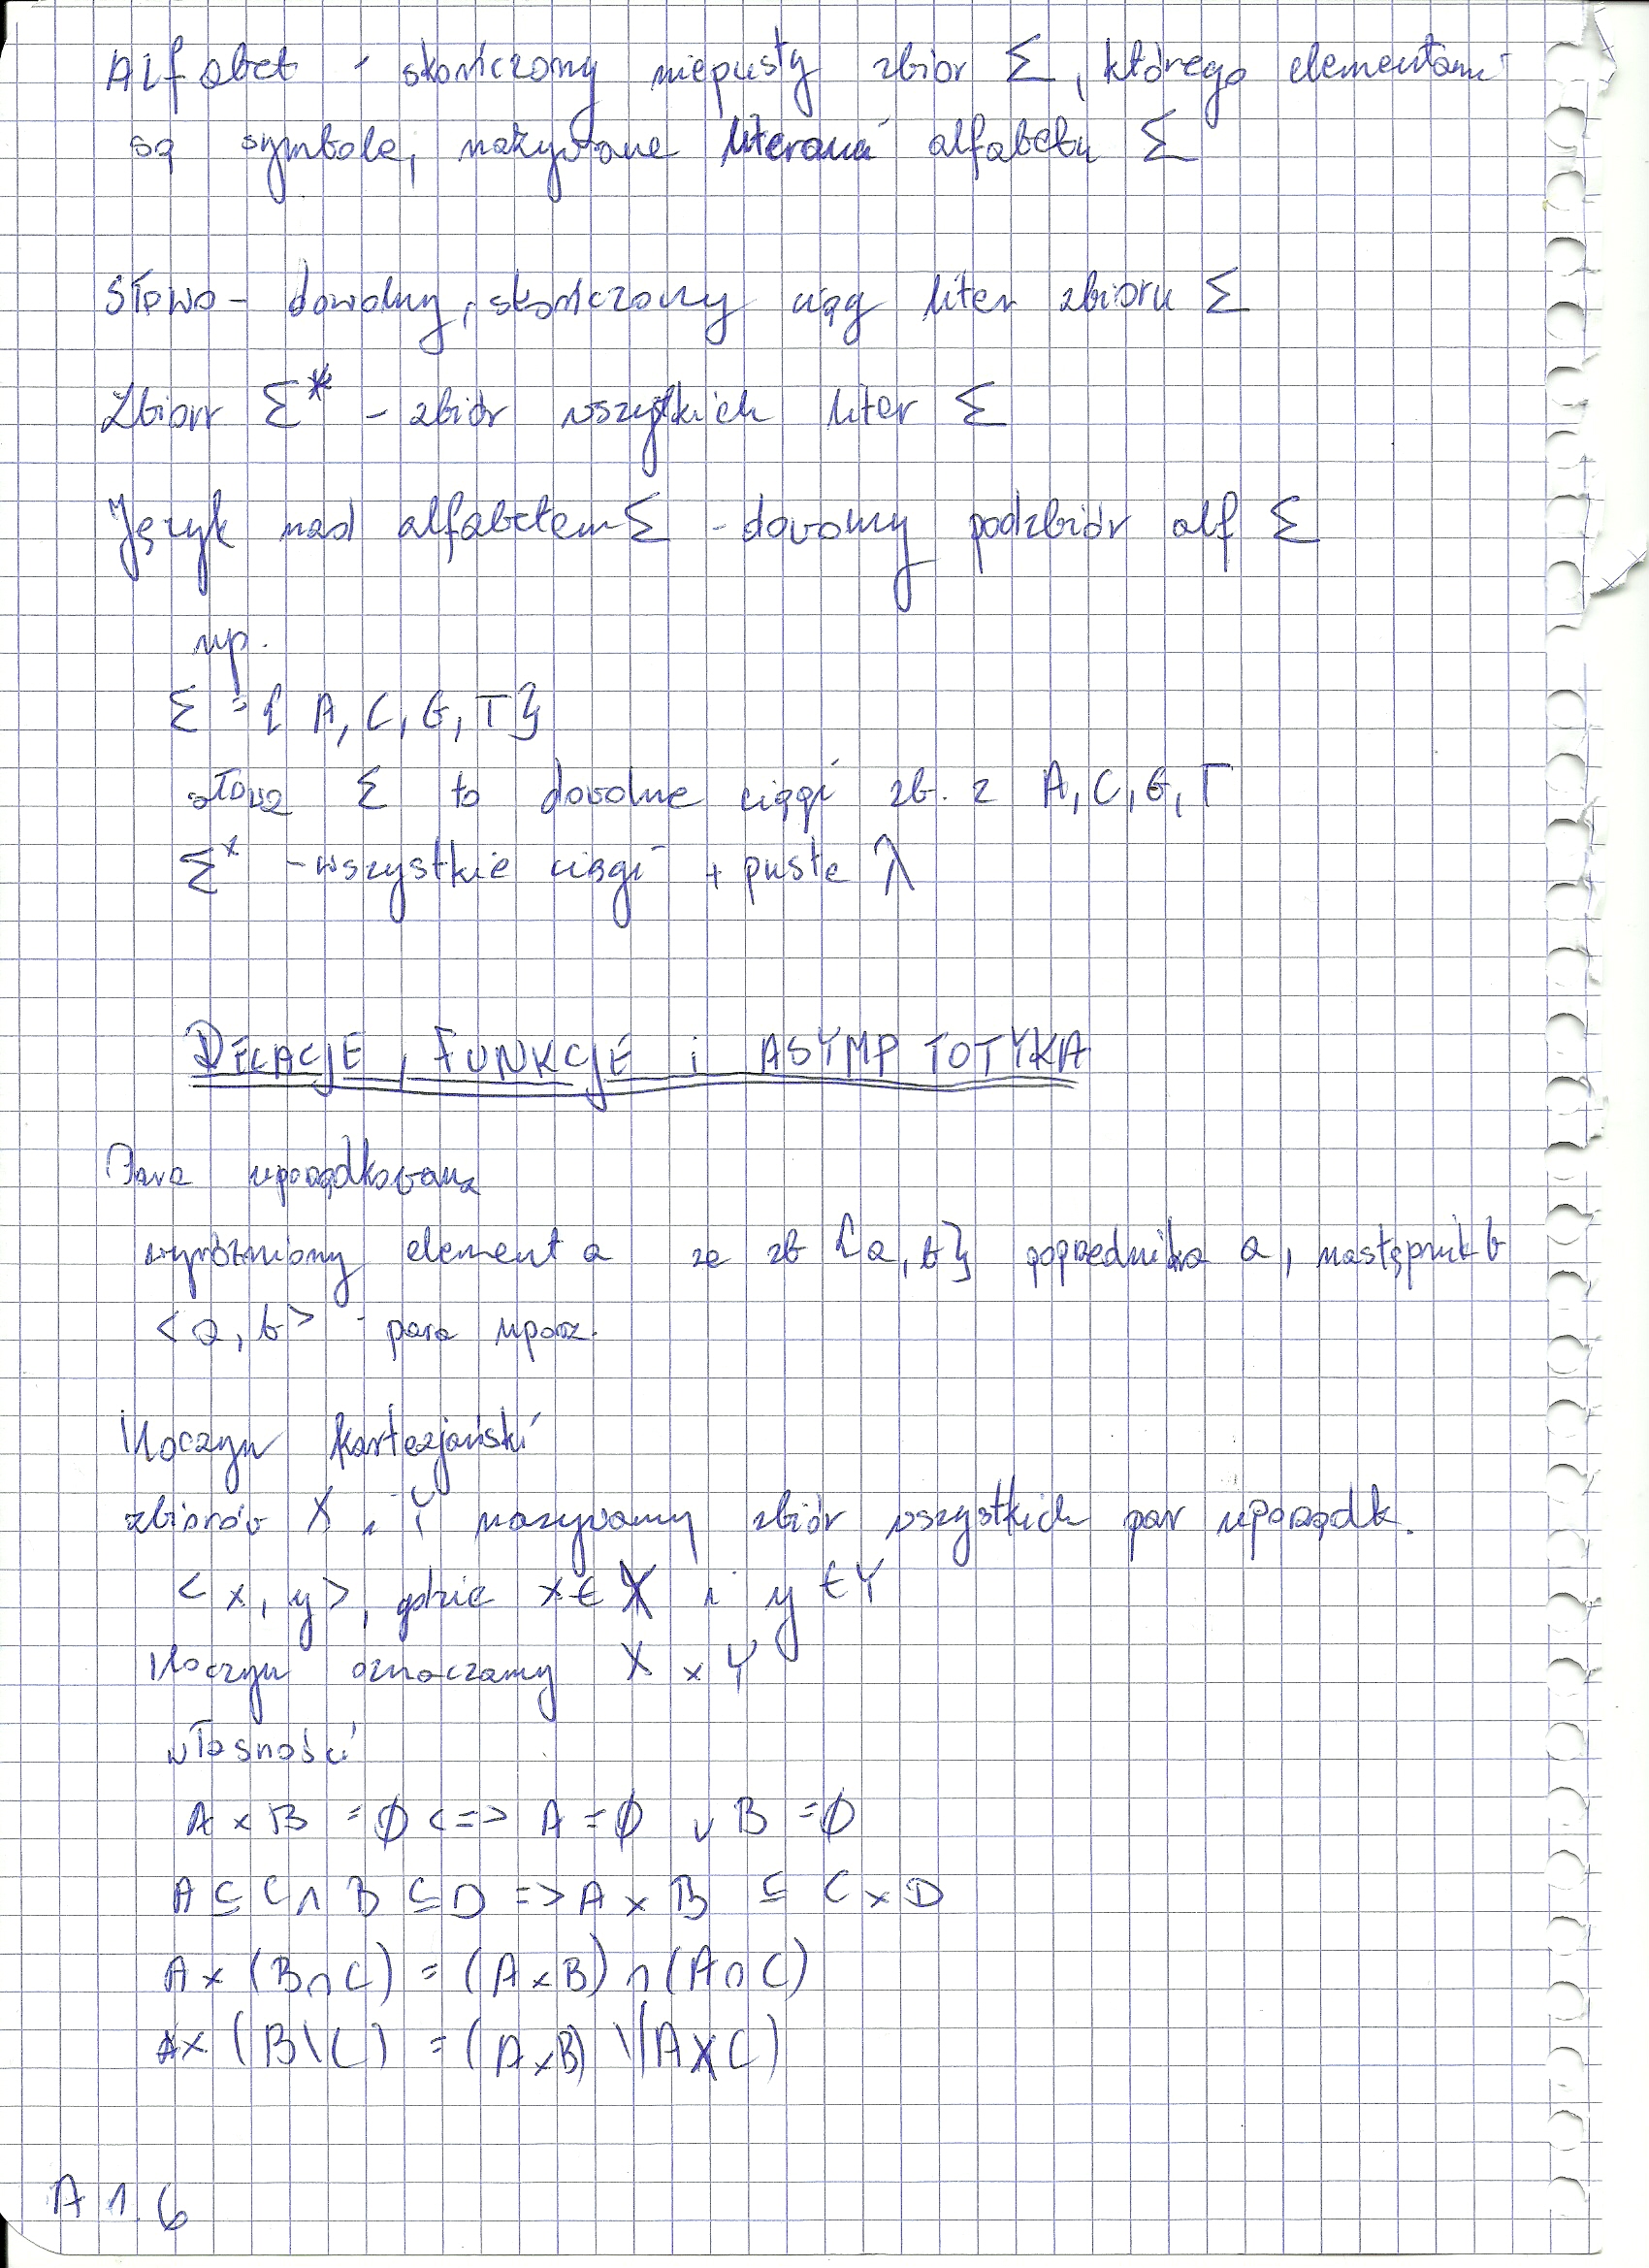 Alfabet - skończony niepusty zbiór Σ, którego elementami
są symbole, nazywane literami alfabetu Σ
Słowo - dowolny, skończony ciąg liter zbioru Σ
Zbiorr Σ* - zbiór wszystkich liter Σ
Język nad alfabetem Σ - dowolny podzbiór alf Σ
np.
Σ = { A, C, G, T }
słowa Σ to dowolne ciągi zb. z A, C, G, T
Σ* - wszystkie ciągi + puste λ
RELACJE, FUNKCJE i ASYMPTOTYKA
Para uporządkowana
wyróżniony element a ze zb {a, b} poprzednika a, następnik b
<a, b> - para uporz.
Iloczyn Kartezjański
zbiorów X i Y nazywamy zbiór wszystkich par uporządk.
<x, y>, gdzie x ∈ X i y ∈ Y
Iloczyn oznaczamy X × Y
własności
A × B = ∅ <=> A = ∅ ∨ B = ∅
A ⊆ C ∧ B ⊆ D => A × B ⊆ C × D
A × (B ∩ C) = (A × B) ∩ (A ∩ C)
A × (B \ C) = (A × B) \ (A × C)
A 1.6